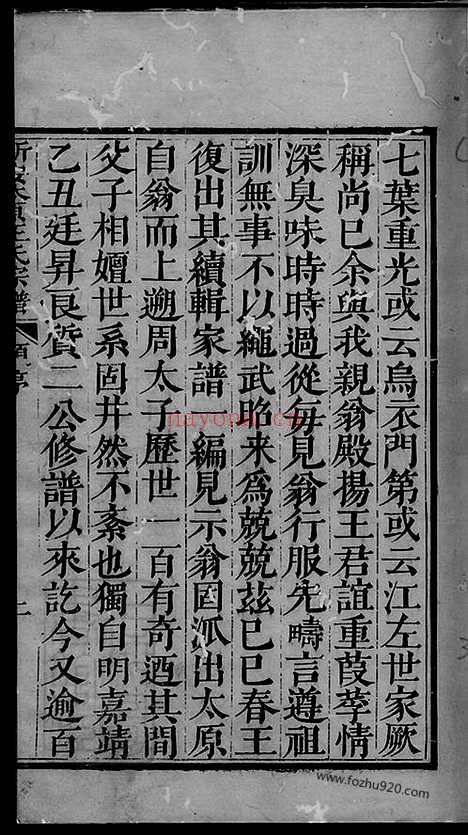 七葉重光或云烏衣門第或云江左世家厥
稱尚已余與我親翁殿揚王君誼重葭莩情
深臭味時時過從每見翁行服先疇言遵祖
訓無事不以繩武昭来為兢兢兹己巳春王
復出其續輯家譜一編見示翁固派出太原
自翁而上遡周太子歷世一百有奇迺其間
父子相嬗世系固井然不紊也獨自明嘉靖
乙丑廷昇良貲二公修譜以來訖今又逾百
王氏宗譜
序
上
nayona.cn
www.fozhu920.com